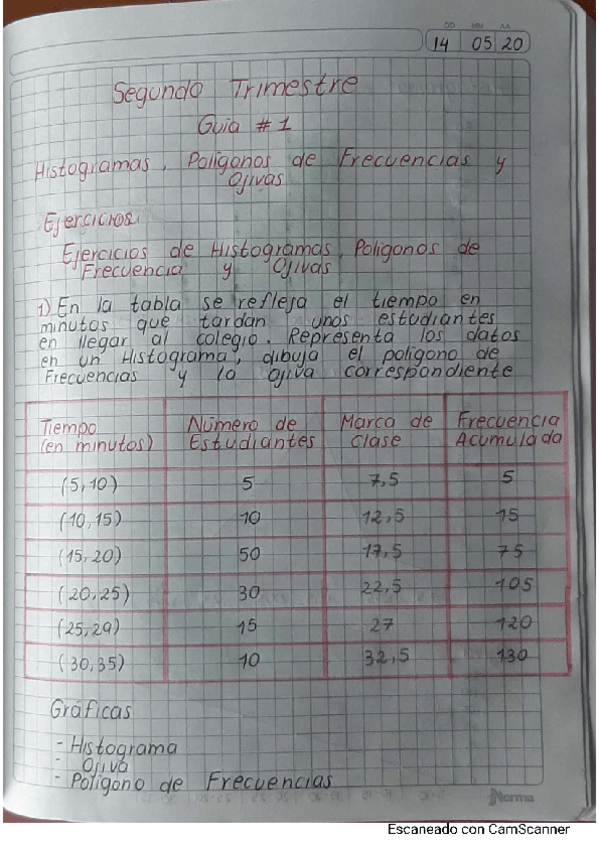 DD MM AA
14 05 20
Segundo Trimestre
Guia # 1
Histogramas, Poligonos de Frecuencias y
Ojivas
Ejercicios.
Ejercicios de Histogramas, Poligonos de
Frecuencia y Ojivas
1) En la tabla se refleja el tiempo en
minutos que tardan unos estudiantes
en llegar al colegio. Representa los datos
en un Histograma, dibuja el poligono de
Frecuencias y la Ojiva correspondiente
Tiempo (en minutos) Número de Estudiantes Marca de clase Frecuencia Acumulada
(5,10) 5 7,5 5
(10,15) 10 12,5 15
(15,20) 50 17,5 75
(20,25) 30 22,5 105
(25,29) 15 27 120
(30,35) 10 32,5 130
Gráficas
- Histograma
- Ojiva
- Poligono de Frecuencias
Norma
Escaneado con CamScanner